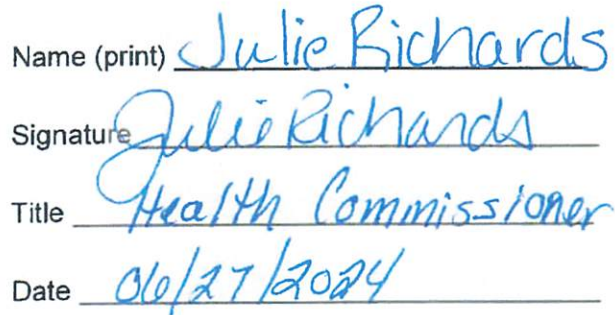 Name (print) Julie Richards
Signature Julie Richards
Title Health Commissioner
Date 06/27/2024